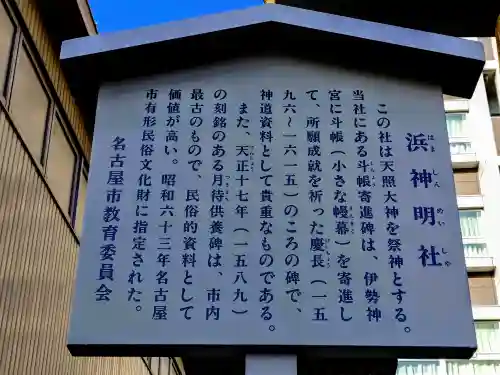 浜神明社
はましんめいしゃ
この社は天照大神を祭神とする。
当社にある斗帳寄進碑は、伊勢神
宮に斗帳（小さな幔幕）を寄進し
て、所願成就を祈った慶長（一五
九六〜一六一五）のころの碑で、
神道資料として貴重なものである。
また、天正十七年（一五八九）
の刻銘のある月待供養碑は、市内
最古のもので、民俗的資料として
価値が高い。昭和六十三年名古屋
市有形民俗文化財に指定された。
名古屋市教育委員会